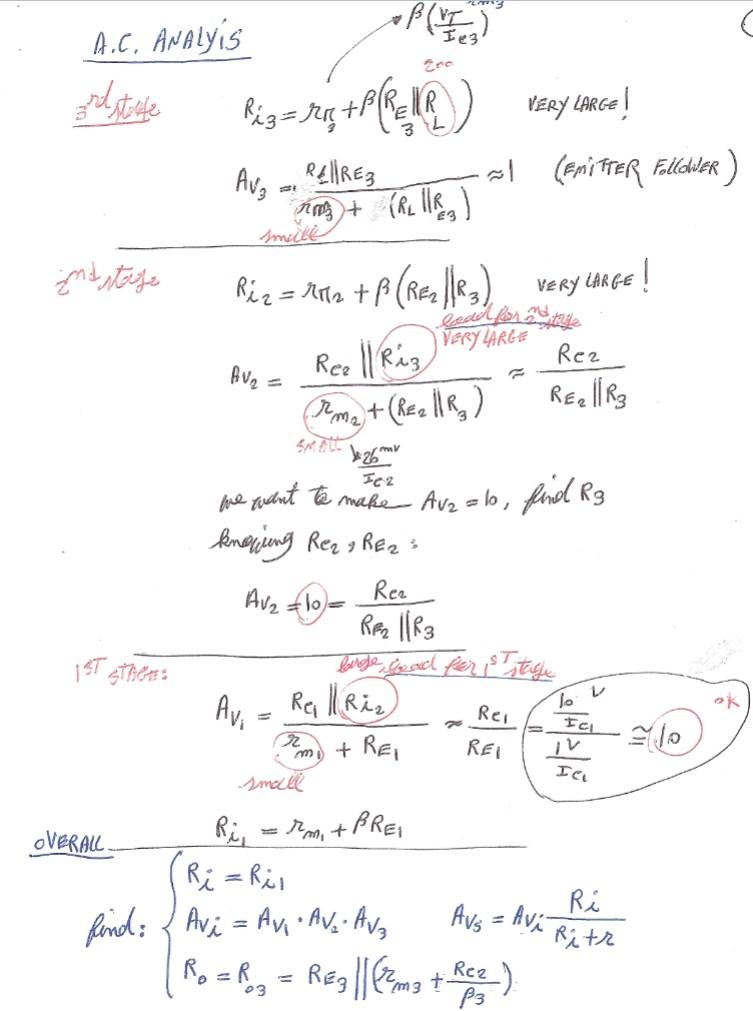 β(VT/Ie3)
A.C. ANALYIS
200
3rd stage
Ri3 = rπ3 + β(RE3||RL) VERY LARGE!
AV3 = RL||RE3 / rm3 + (RL||RE3) ≈ 1 (EMITTER FOLLOWER)
small
2nd stage
Ri2 = rπ2 + β(RE2||R3) VERY LARGE!
load for 2nd stage
VERY LARGE
AV2 = Rc2 || Ri3 / rm2 + (RE2||R3) ≈ Rc2 / RE2||R3
SMALL
26mv / Ic2
we want to make AV2 = 10, find R3
knowing Rc2, RE2:
AV2 = 10 = Rc2 / RE2||R3
1ST STAGE:
large load for 1ST stage
AV1 = Rc1 || Ri2 / rm1 + RE1 ≈ Rc1 / RE1 = 10V/Ic1 / 1V/Ic1 ≅ 10 ok
small
Ri1 = rm1 + βRE1
OVERALL
find:
Ri = Ri1
AVi = AV1 · AV2 · AV3 AVs = AVi Ri / Ri + r
Ro = Ro3 = RE3 || (rm3 + Rc2/β3)